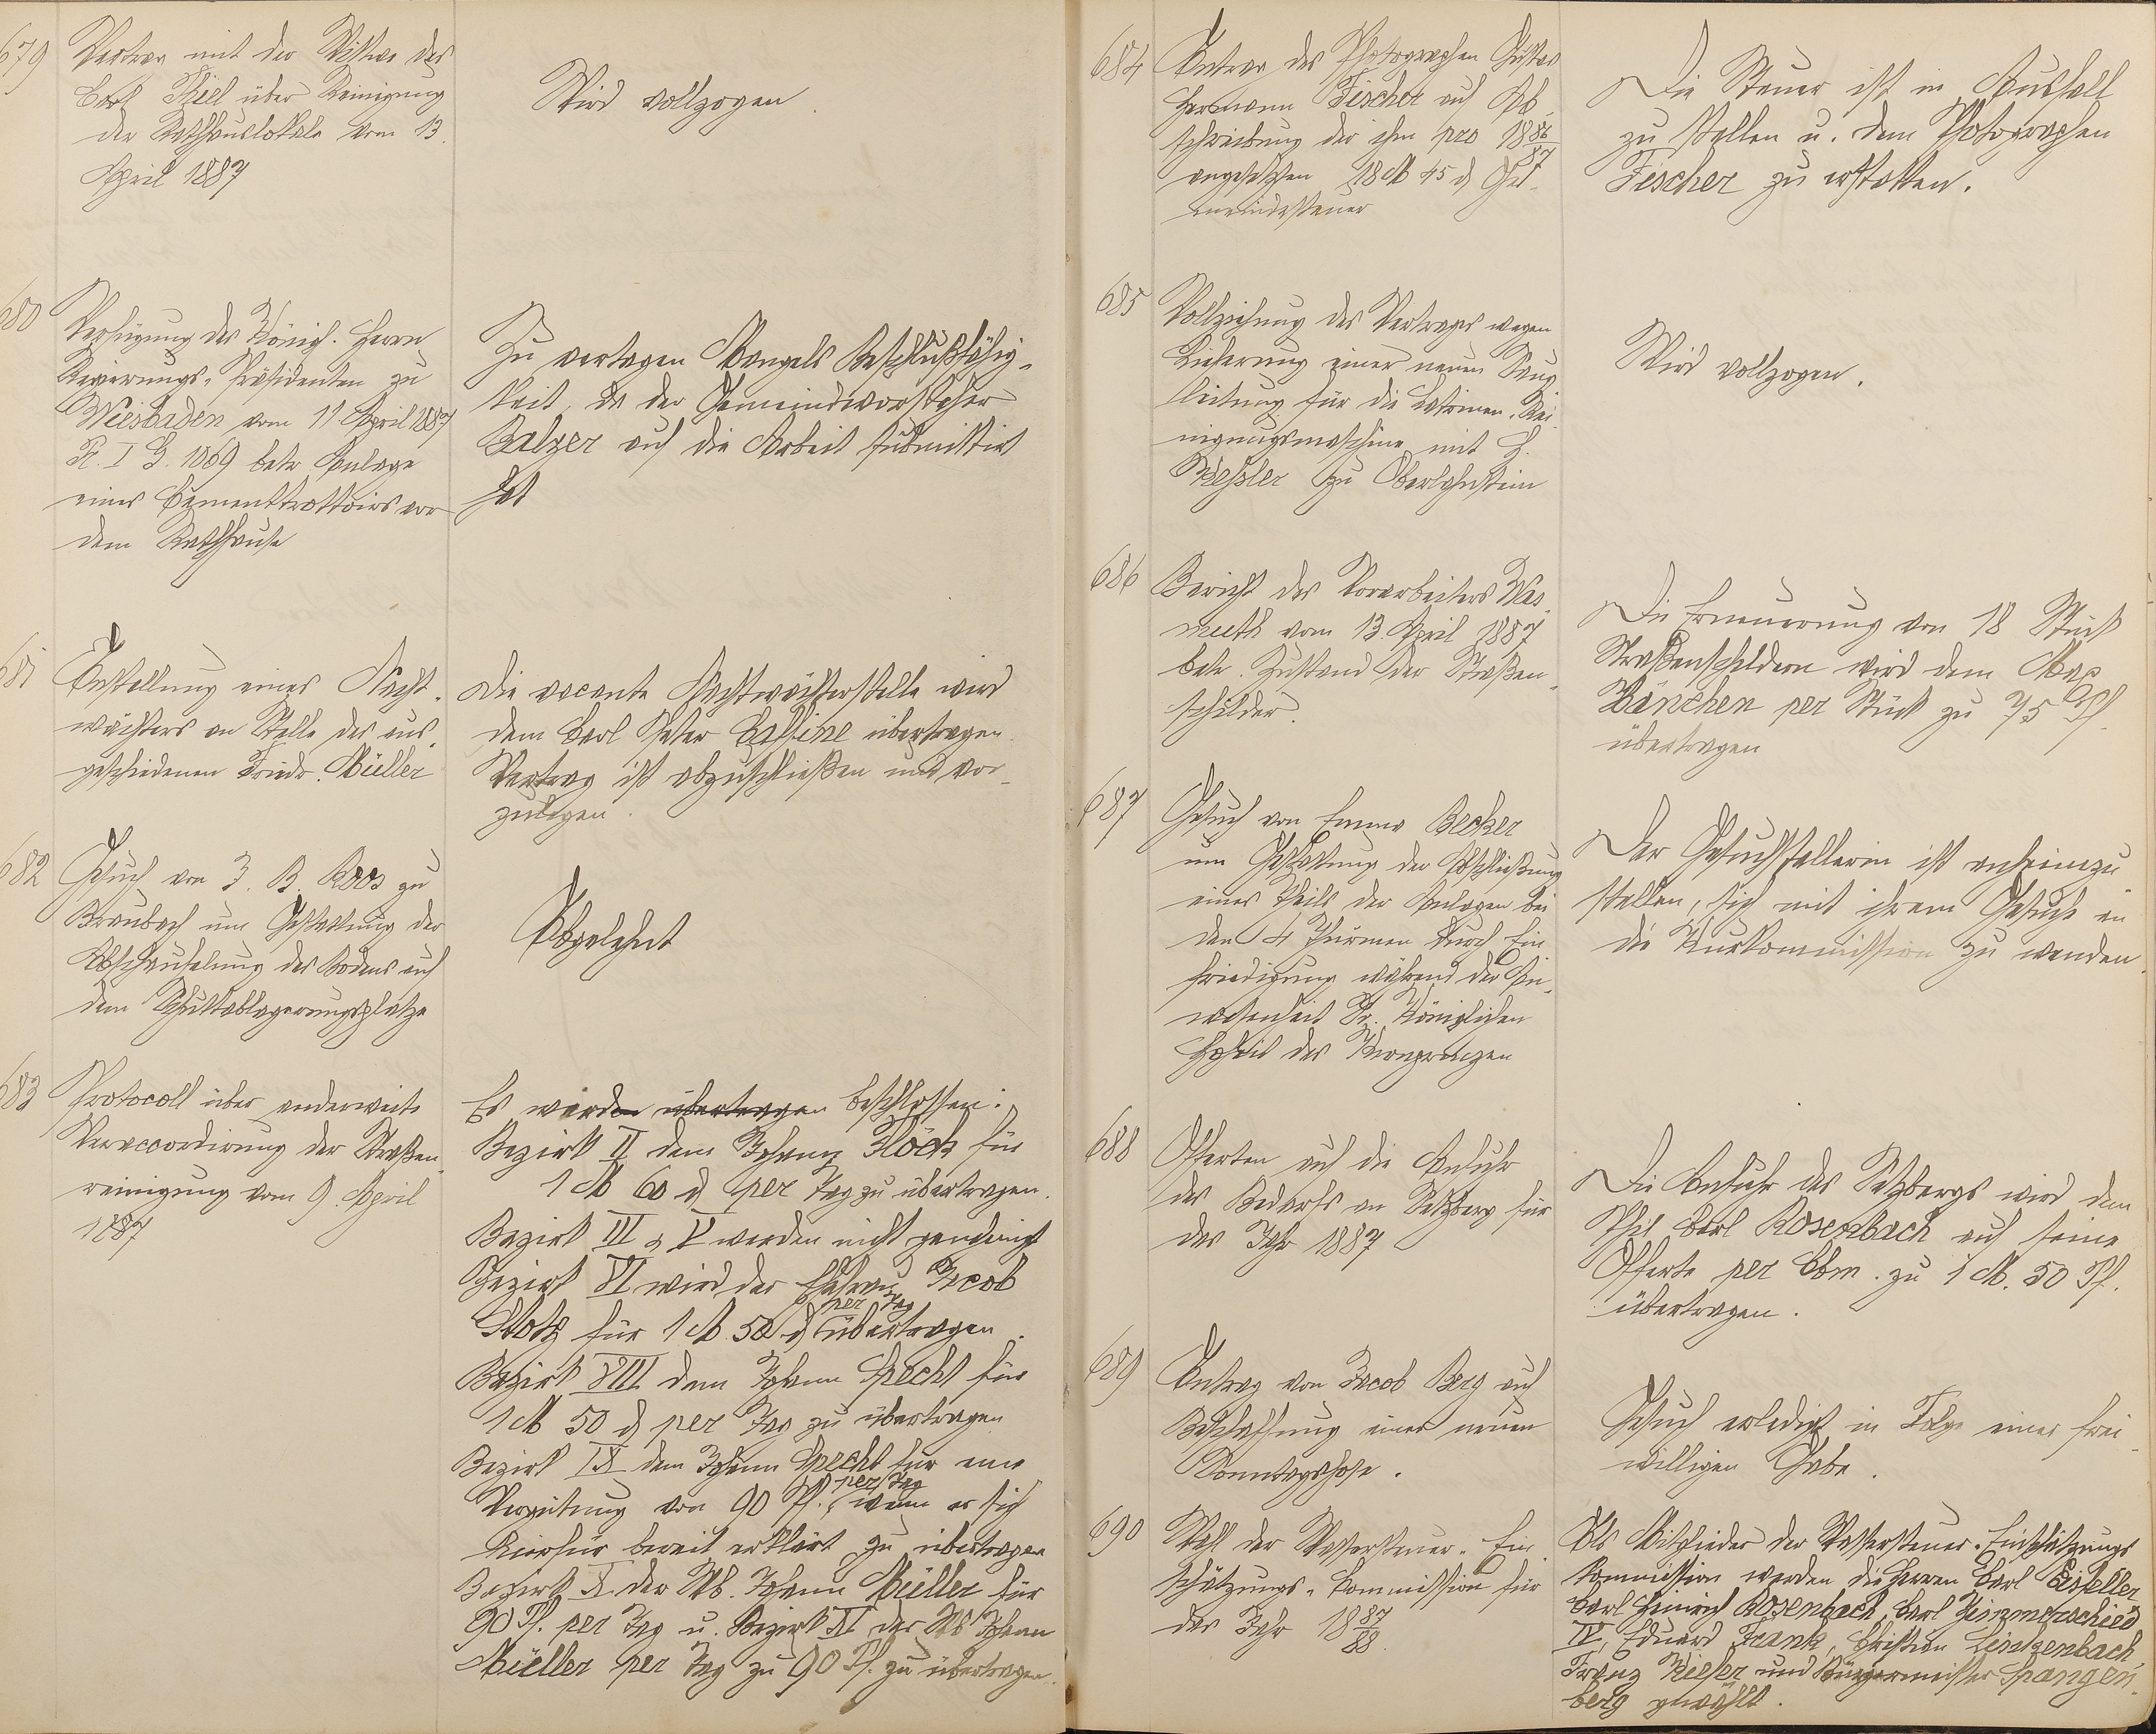 679
Vertrag mit der Wittwe des
Carl Thiel über Reinigung
der Rathhauslokale vom 13.
April 1887
Wird vollzogen.
680
Verfügung des Königl. Herrn
Regierungs-Präsidenten zu
Wiesbaden vom 11. April 1887
R. I G. 1069 betr. Anlage
eines Cementtrottoirs vor
dem Rathhause
Zu vertagen Mangels Beschlußfähig-
keit, da der Gemeindevorsteher
Balzer auf die Arbeit submittirt
hat
681
Anstellung eines Nacht-
wächters an Stelle des aus-
geschiedenen Friedr. Müller
Die vacante Nachtwächterstelle wird
dem Carl Peter Cassine übertragen.
Vertrag ist abzuschließen und vor-
zulegen.
682
Gesuch von J. B. Roos zu
Braubach um Gestattung der
Abschaufelung des Bodens auf
dem Schuttablagerungsplatze
Abgelehnt
683
Protocoll über anderweite
Veraccordirung der Straßen-
reinigung vom 9. April
1887
Es wurden übertragen beschlossen:
Bezirk II dem Johann Flöck für
1 M 60 d per Tag zu übertragen.
Bezirk III & V werden nicht genehmigt
Bezirk VI wird der Ehefrau Jacob
per Tag
für 1 M 50 d übertragen.
Bezirk VIII dem Johann Specht für
1 M 50 d per Tag zu übertragen
Bezirk IX dem Johann Specht für eine
per Tag
Vergütung von 90 Pf., wenn er sich
hierfür bereit erklärt zu übertragen
Bezirk X der Wb. Johann Müller für
90 Pf. per Tag u. Bezirk XI der Wb Johann
Müller per Tag zu 90 Pf. zu übertragen.
684
Antrag des Photographen Gustav
Hermann Fischer auf Ab-
schreibung der ihm pro 1886/87
angesetzten 18 M 45 d Ge-
meindesteuer
Die Steuer ist in Ausfall
zu stellen u. dem Photographen
Fischer zu erstatten.
685
Vollziehung des Vertrages wegen
Lieferung einer neuen Saug-
leitung für die Latrinen-Rei-
nigungsmaschine mit H.
Weßler zu Oberlahnstein
Wird vollzogen.
686
Bericht des Vorarbeiters Was-
muth vom 13. April 1887
betr. Zustand der Straßen-
schilder.
Die Erneuerung von 18 Stück
Straßenschildern wird dem Max
Hänchen per Stück zu 75 Pf.
übertragen
687
Gesuch von Emma Becker
um Gestattung der Abschließung
eines Theils der Anlagen bei
den 4 Thürmen durch Ein-
friedigung während der An-
wesenheit Sr. Königlichen
Hoheit des Kronprinzen
Der Gesuchstellerin ist anheimzu
stellen, sich mit ihrem Gesuche an
die Kurkommission zu wenden.
688
Offerten auf die Anfuhr
des Bedarfs an Setzberg für
das Jahr 1887
Die Anfuhr des Setzbergs wird dem
Phil. Carl Rosenbach auf seine
Offerte per Cbm. zu 1 M. 50 Pf.
übertragen.
689
Antrag von Jacob Berg auf
Beschaffung einer neuen
Sonntagshose.
Gesuch erledigt in Folge einer frei-
willigen Gabe.
690
Wahl der Wassersteuer-Ein-
schätzungs-Commission für
das Jahr 1887/88.
Als Mitglieder der Wassersteuer-Einschätzungs
Kommission werden die Herren Carl Eisfeller
Carl Heinrich Rosenbach, Carl Zimmerschied
IV, Eduard Frank, Christian Lintzenbach,
Franz Kiefer und Bürgermeister Spangen-
berg gewählt.